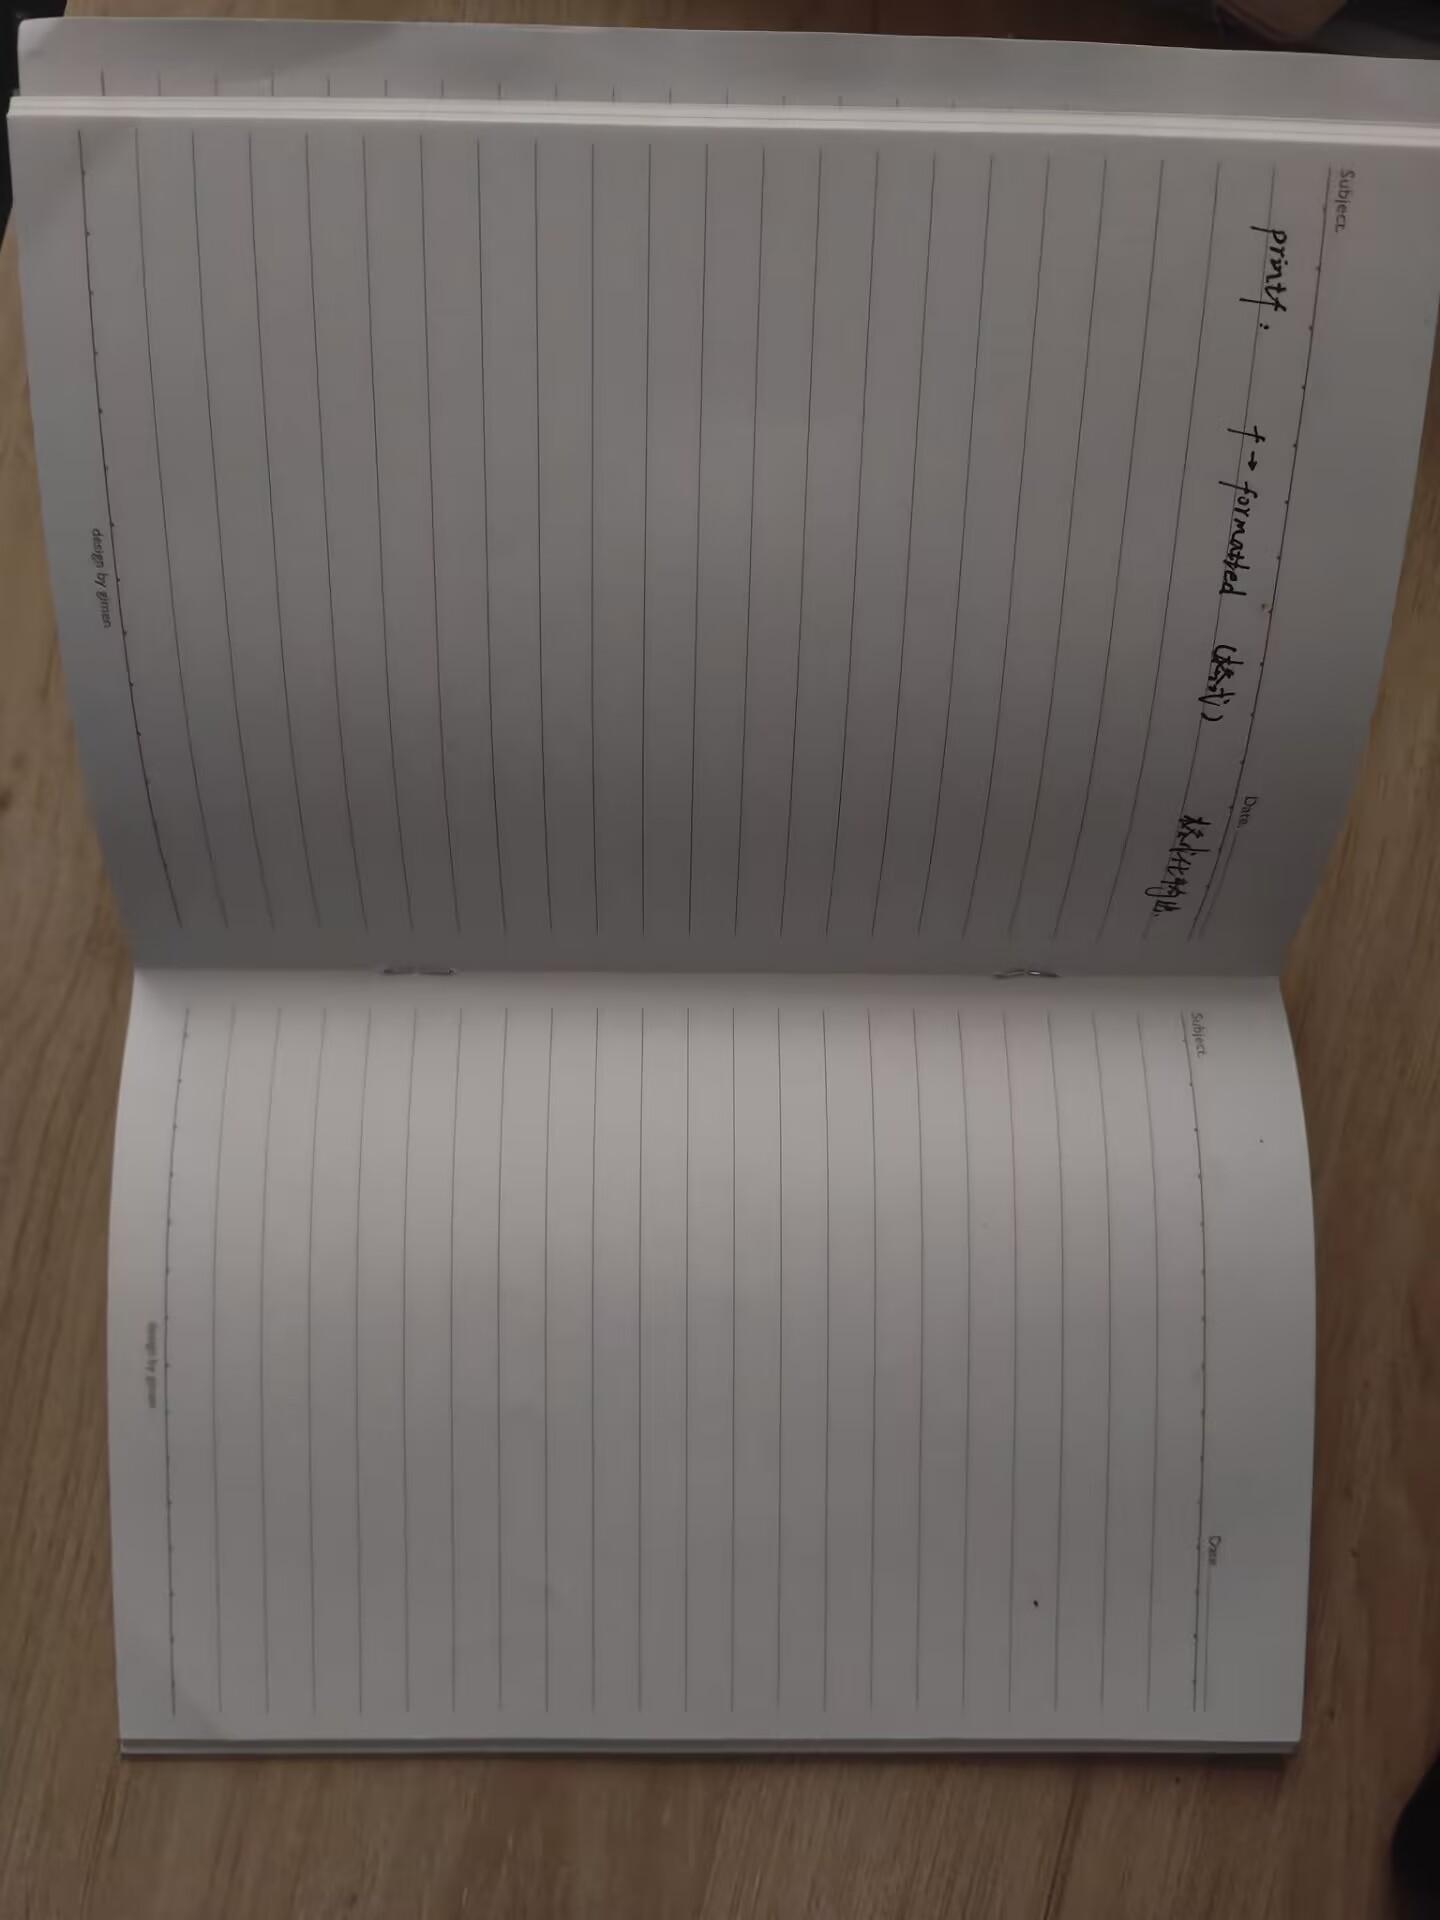 Subject: Date:
printf: f → formatted (格式) 格式化输出.
design by gimen
Subject: Date:
design by gimen